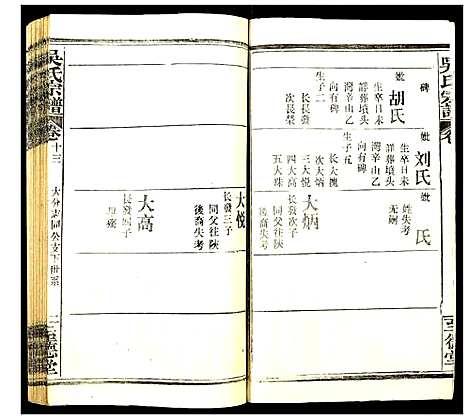 吳氏宗譜
碑
妣胡氏
生卒日未
詳葬墳頭
灣辛山乙
向有碑
生子二
長長發
次長榮
妣刘氏
生卒日未
詳葬墳頭
灣辛山乙
向有碑
生子五
長大槐
次大炳
三大悅
四大高
五大珠
妣 氏
姓失考
无嗣
大炳
長發次子
同父往陝
後裔失考
大悅
長發三子
同父往陝
後裔失考
大高
長發四子
吳氏宗譜
卷十三
大分志同公支下世系